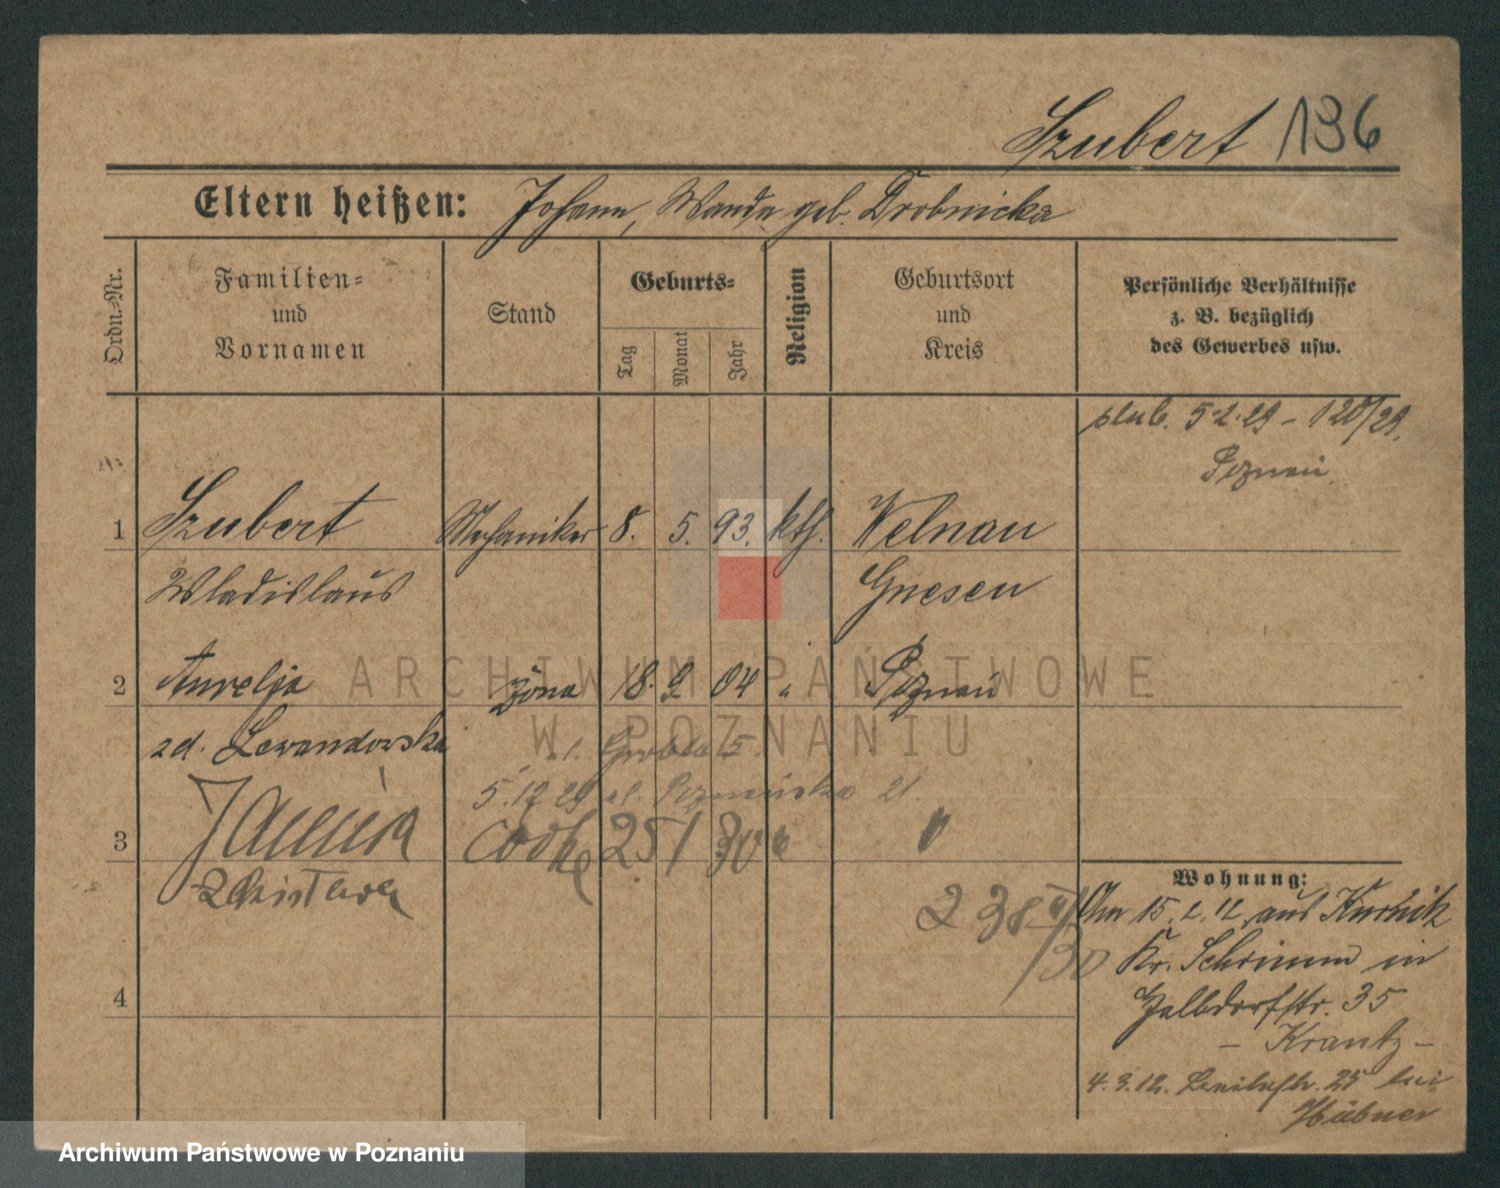 Szubert 136
Eltern heißen: Johann, Wanda geb. Drobnicka
Ordn.-Nr.
Familien-
und
Vornamen
Stand
Geburts-
Tag
Monat
Jahr
Religion
Geburtsort
und
Kreis
Persönliche Verhältnisse
z. B. bezüglich
des Gewerbes usw.
ślub. 5.2.29 - 120/29.
Poznań
1 Szubert Mechaniker 8. 5. 93. kth. Welnau
Wladislaus Gnesen
2 Aurelja żona 18. 9. 04 " Poznań
zd. Lewandowska
ul. Grobla 5.
5.12 29 ul. Poznańska 21.
3 Janina córka 25 1 30 " "
Zdzisława
4
Wohnung:
Am 15.2.12. aus Kurnik
Kr. Schrimm in
Halbdorfstr. 35
- Krantz -
4.3.12. 25 bei
Hübner
ARCHIWUM PAŃSTWOWE
W POZNANIU
Archiwum Państwowe w Poznaniu